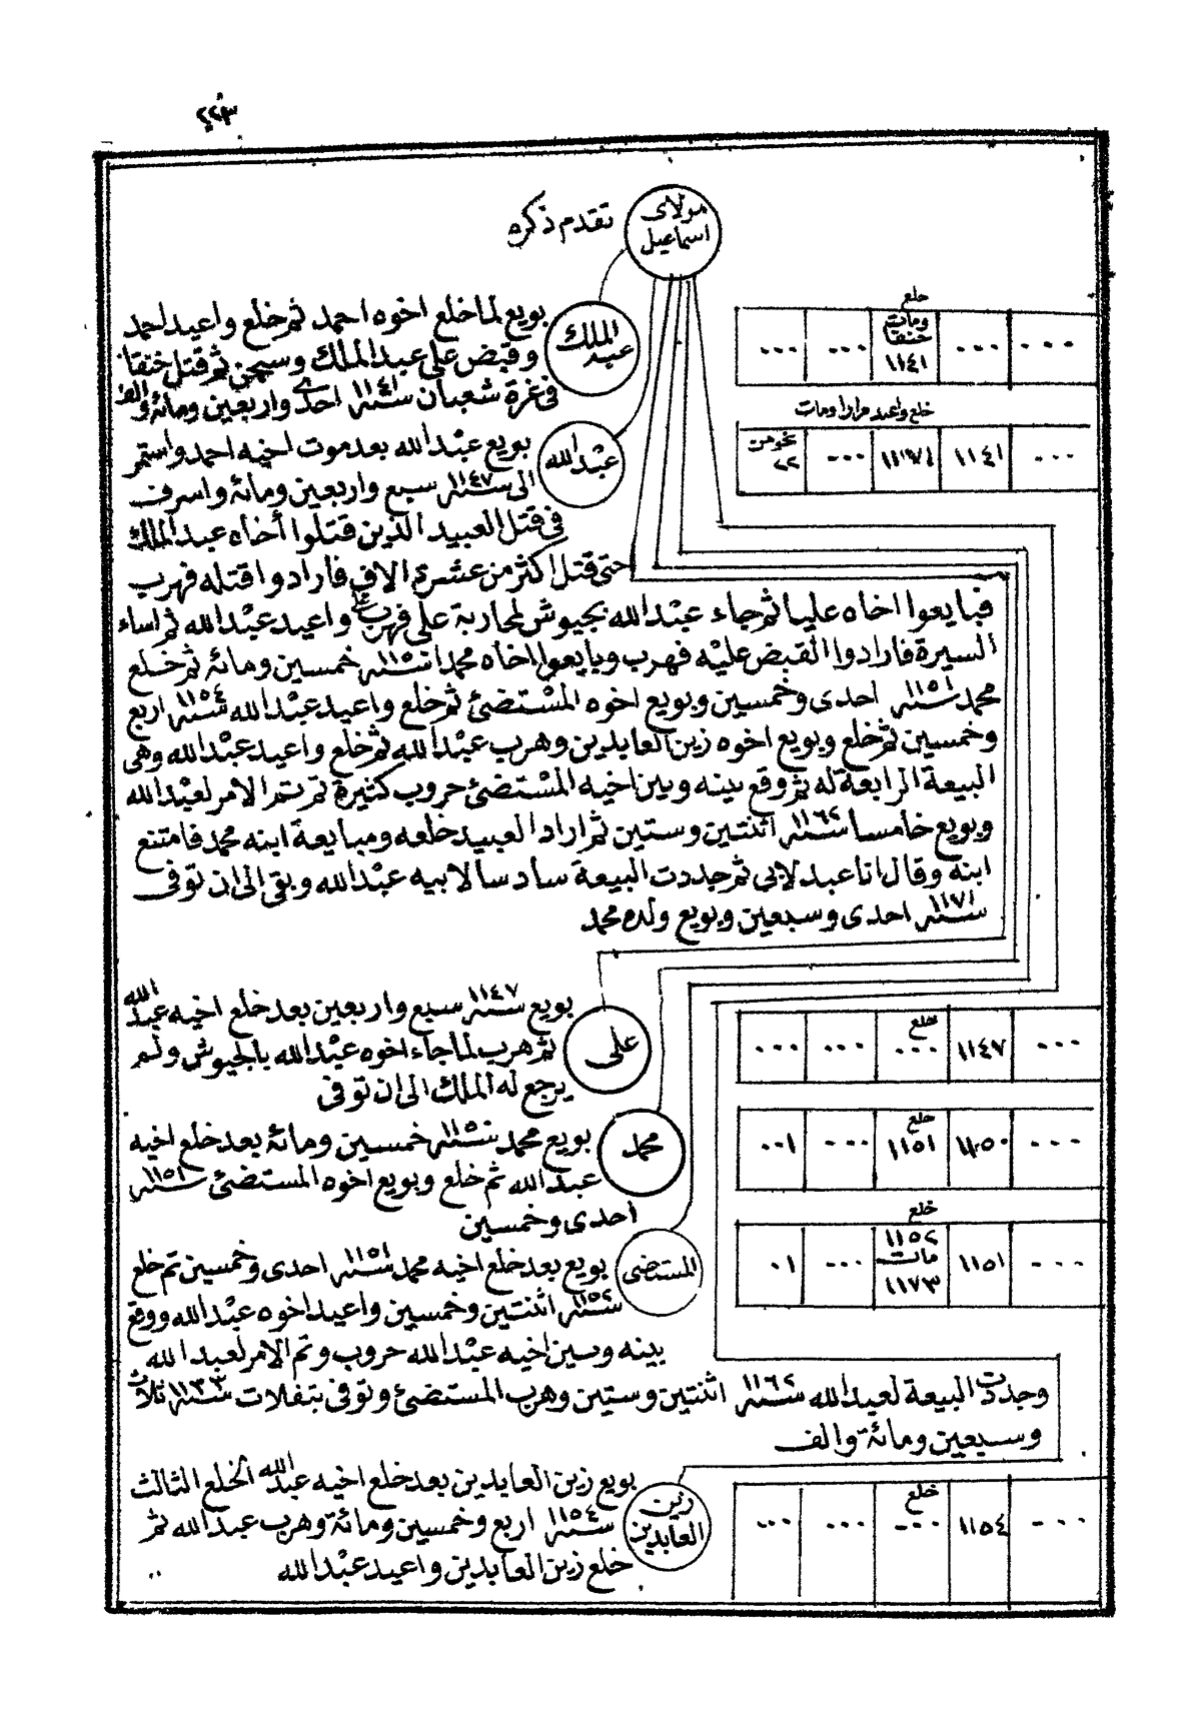 ٢٢٣
مولاى
اسماعيل
تقدم ذكره
خلع
ومات
خنقا
١١٤١
٠٠٠
٠٠٠
٠٠٠
٠٠٠
عبد
الملك
بويع لما خلع اخوه احمد ثم خلع واعيد احمد
وقبض على عبد الملك وسجن ثم قتل خنقا
فى غرة شعبان سنة ١١٤١ احدى واربعين ومائة والف
خلع واعيد مرارا ومات
٠٠٠
١١٤١
١١٧١
٠٠٠
نحو من
٢٢
عبد الله
بويع عبد الله بعد موت اخيه احمد واستمر
الى سنة ١١٤٧ سبع واربعين ومائة واسرف
فى قتل العبيد الذين قتلوا أخاه عبد الملك
حتى قتل اكثر من عشرة الاف فارادوا قتله فهرب
فبايعوا اخاه عليا ثم جاء عبد الله بجيوش لمحاربة على فهرب على واعيد عبد الله ثم اساء
السيرة فارادوا القبض عليه فهرب وبايعوا اخاه محمدا سنة ١١٥٠ خمسين ومائة ثم خلع
محمد سنة ١١٥١ احدى وخمسين وبويع اخوه المستضئ ثم خلع واعيد عبد الله سنة ١١٥٤ اربع
وخمسين ثم خلع وبويع اخوه زين العابدين وهرب عبد الله ثم خلع واعيد عبد الله وهى
البيعة الرابعة له ثم وقع بينه وبين اخيه المستضئ حروب كثيرة ثم تم الامر لعبد الله
وبويع خامسا سنة ١١٦٢ اثنتين وستين ثم اراد العبيد خلعه ومبايعة ابنه محمد فامتنع
ابنه وقال انا عبد لابى ثم جددت البيعة سادسا لابيه عبد الله وبقى الى ان توفى
سنة ١١٧١ احدى وسبعين وبويع ولده محمد
على
بويع سنة ١١٤٧ سبع واربعين بعد خلع اخيه عبد الله
ثم هرب لما جاء اخوه عبد الله بالجيوش ولم
يرجع له الملك الى ان توفى
٠٠٠
١١٤٧
خلع
٠٠٠
٠٠٠
٠٠٠
محمد
بويع محمد سنة ١١٥٠ خمسين ومائة بعد خلع اخيه
عبد الله ثم خلع وبويع اخوه المستضئ سنة ١١٥١
احدى وخمسين
٠٠٠
١١٥٠
خلع
١١٥١
٠٠٠
٠٠١
المستضى
بويع بعد خلع اخيه محمد سنة ١١٥١ احدى وخمسين ثم خلع
سنة ١١٥٢ اثنتين وخمسين واعيد اخوه عبد الله ووقع
بينه وبين اخيه عبد الله حروب وتم الامر لعبد الله
وجددت البيعة لعبد الله سنة ١١٦٢ اثنتين وستين وهرب المستضئ وتوفى بتفلات سنة ١١٣٣ ثلاث
وسبعين ومائة والف
خلع
٠٠٠
١١٥١
١١٥٢
مات
١١٧٣
٠٠٠
٠١
زين
العابدين
بويع زين العابدين بعد خلع اخيه عبد الله الخلع الثالث
سنة ١١٥٤ اربع وخمسين ومائة وهرب عبد الله ثم
خلع زين العابدين واعيد عبد الله
٠٠٠
١١٥٤
خلع
٠٠٠
٠٠٠
٠٠٠